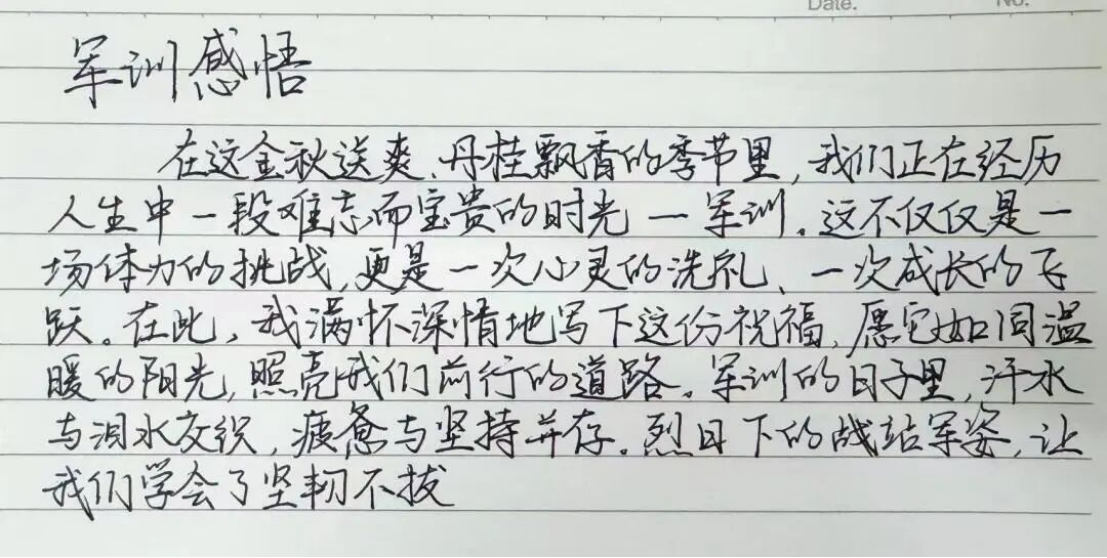 Date.
No.
军训感悟
在这金秋送爽、丹桂飘香的季节里，我们正在经历
人生中一段难忘而宝贵的时光一军训。这不仅仅是一
场体力的挑战，更是一次心灵的洗礼、一次成长的飞
跃。在此，我满怀深情地写下这份祝福，愿它如同温
暖的阳光，照亮我们前行的道路。军训的日子里，汗水
与泪水交织，疲惫与坚持并存。烈日下的战站军姿，让
我们学会了坚韧不拔